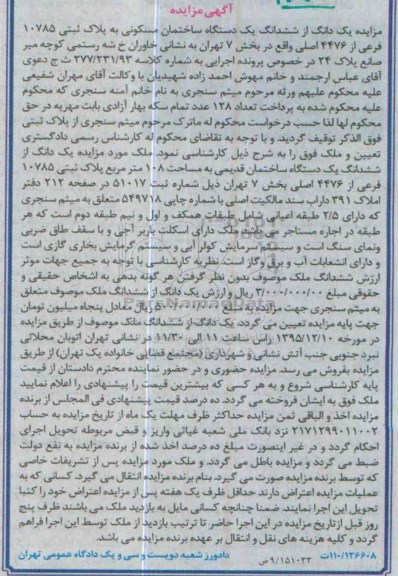 آگهی مزایده
مزایده یک دانگ از ششدانگ یک دستگاه ساختمان مسکونی به پلاک ثبتی ۱۰۷۸۵
فرعی از ۴۴۷۶ اصلی واقع در بخش ۷ تهران به نشانی خاوران خ شه رستمی کوچه میر
صانع پلاک ۲۴ در خصوص پرونده اجرایی به شماره کلاسه ۲۷۷/۲۳۱/۹۳ ث ج دعوی
آقای عباس ارجمند و خانم مهوش احمد زاده شهیدیان با وکالت آقای مهران شفیعی
علیه محکوم علیهم ورثه مرحوم میثم سنجری به نام خانم آمنه سنجری که محکوم
علیه محکوم شده به پرداخت تعداد ۱۲۸ عدد تمام سکه بهار آزادی بابت مهریه در حق
محکوم لها لذا حسب درخواست محکوم له ماترک مرحوم میثم سنجری از پلاک ثبتی
فوق الذکر توقیف گردید. و با توجه به تقاضای محکوم له کارشناس رسمی دادگستری
تعیین و ملک فوق را به شرح ذیل کارشناسی نمود. ملک مورد مزایده یک دانگ از
ششدانگ یک دستگاه ساختمان قدیمی به مساحت ۱۰۸ متر مربع پلاک ثبتی ۱۰۷۸۵
فرعی از ۴۴۷۶ اصلی بخش ۷ تهران ذیل شماره ثبت ۵۱۰۱۷ در صفحه ۲۱۲ دفتر
املاک ۳۹۱ داراب سند مالکیت اصلی با شماره چاپی ۵۴۹۷۱۸ متعلق به میثم سنجری
که دارای ۲/۵ طبقه اعیانی شامل طبقات همکف و اول و نیم طبقه دوم است که هر
طبقه در اجاره مستاجر می باشد ملک دارای اسکلت باربر آجی و با سقف طاق ضربی
ونمای سنگ است و سیستم سرمایش کولر آبی و سیستم گرمایش بخاری گازی است
و دارای انشعابات آب و برق وگاز است. نظریه کارشناسی با توجه به جمیع جهات موثر
ارزش ششدانگ ملک موصوف بدون نظر گرفتن هر گونه بدهی به اشخاص حقیقی و
حقوقی مبلغ ۳/۰۰۰/۰۰۰/۰۰ ریال و ارزش یک دانگ از ششدانگ ملک موصوف متعلق
به میثم سنجری جهت مزایده به مبلغ ریال معادل پنجاه میلیون تومان
جهت پایه مزایده تعیین می گردد. یک دانگ از ششدانگ مانک موصوف از طریق مزایده
در مورخه ۱۳۹۵/۱۲/۱۰ راس ساعت ۱۱ الی ۱۱/۳۰ در نشانی تهران اتوبان محلاتی
نبرد جنوبی جنب آتش نشانی و شهرداری (مجتمع قضایی خانواده یک تهران) از طریق
مزایده بفروش می رسد. مزایده حضوری و در حضور نماینده محترم دادستان از قیمت
پایه کارشناسی شروع و به هر کسی که بیشترین قیمت را پیشنهادی را اعلام نمایید
ملک فوق به ایشان فروخته می گردد. ده درصد قیمت پیشنهادی فی المجلس از برنده
مزایده اخذ و الباقی ثمن مزایده حداکثر ظرف مهلت یک ماه از تاریخ مزایده به حساب
۲۱۷۱۲۹۹۰۱۱۰۰۲ نزد بانک ملی شعبه غیاثی واریز و قبض مربوطه تحویل اجرای
احکام گردد و در غیر اینصورت مبلغ ده درصد اخذ شده از برنده مزایده به نفع دولت
ضبط می گردد و مزایده باطل می گردد. و ملک مورد مزایده پس از تشریفات خاصی
که توسط برنده مزایده صورت می گیرد. بنام برنده مزایده انتقال می گیرد. کسانی که به
عملیات مزایده اعتراض دارند حداقل ظرف یک هفته پس از مزایده اعتراض خود را کتبا
تحویل این اجرا نمایند. ضمنا چنانچه کسانی مایل به بازدید ملک می باشند ظرف پنج
روز قبل از تاریخ مزایده در این اجرا حاضر تا ترتیب بازدید از ملک توسط این اجرا فراهم
گردد و کلیه هزینه های نقل و انتقال بر عهده برنده مزایده می باشد.
۱۱۰/۱۳۶۶۰۸ت دادورز شعبه دویست و سی و یک دادگاه عمومی تهران
۹/۱۵۱۰۳۳ ص